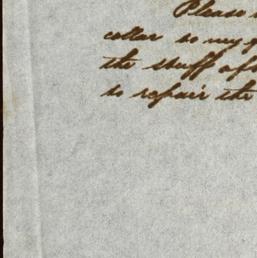 Please
collar so my
the stuff aft
to repair the